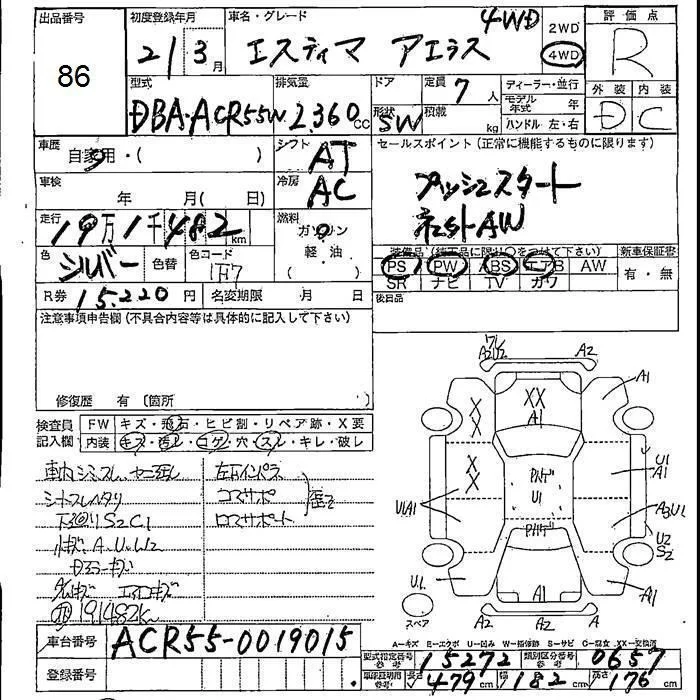 出品番号
86
初度登録年月
21 3 月
車名・グレード
エスティマ アエラス 4WD
2WD
4WD
評価点
R
外装 内装
D C
型式
DBA-ACR55W
排気量
2,360 cc
ドア
形状
SW
定員
7 人
積載
kg
ディーラー・並行
モデル年式 年
ハンドル 左・右
車歴
自家用・( )
シフト
AT
車検
年 月( 日)
冷房
AC
走行
19万1千482 km
燃料
ガソリン
軽油
( )
色
シルバー
色替
色コード
1F7
R券 15,220 円
名変期限 月 日
セールスポイント(正常に機能するものに限ります)
プッシュスタート
社外AW
装備品(純正品に限り○をつけて下さい)
新車保証書
PS PW ABS エアB AW
有・無
SR ナビ TV カワ
後日品
注意事項申告欄(不具合内容等は具体的に記入して下さい)
修復歴 有〔箇所 〕
検査員
記入欄
FW キズ・飛石・ヒビ割・リペア跡・X要
内装 キズ・汚レ・コゲ・穴・スレ・キレ・破レ
下廻りS2C1
小キズ A.U.W2
191482K
左右インパネ
コアサポ
ロアサポート
歪2
A2U2
A2
A1
XX
A1
XX
XX
U1A1
U1
A1
A3U1
U2
S2
U1
U1
A1
A1
A2
A2
A
スペア
A-キズ E-エクボ U-凹み W-補修跡 S-サビ C-腐食 XX-交換済
車台番号
ACR55-0019015
登録番号
型式指定番号
参考
15272
類別区分番号
参考
0657
車検証記載
参考
長さ 479 cm
幅 182 cm
高さ 176 cm